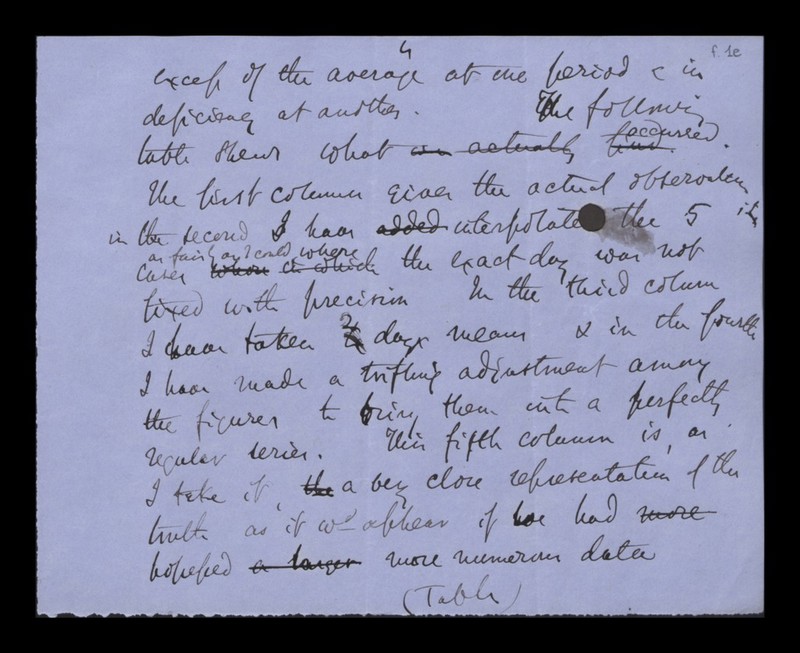 4
f. 1e
excess of the average at one period & in
deficiency at another. The following
table shews what actually occurred.
The first column gives the actual observations
in the second I have added interpolated the 5
as fairly as I could where
cases when in which the exact day was not
fixed with precision In the third column
I have taken 2 days means & in the fourth
I have made a trifling adjustment among
the figures to bring them into a perfectly
regular series. This fifth column is, as
I take it, the a very close representation of the
truth as it wd appear if we had more
a larger more numerous data
(Table)